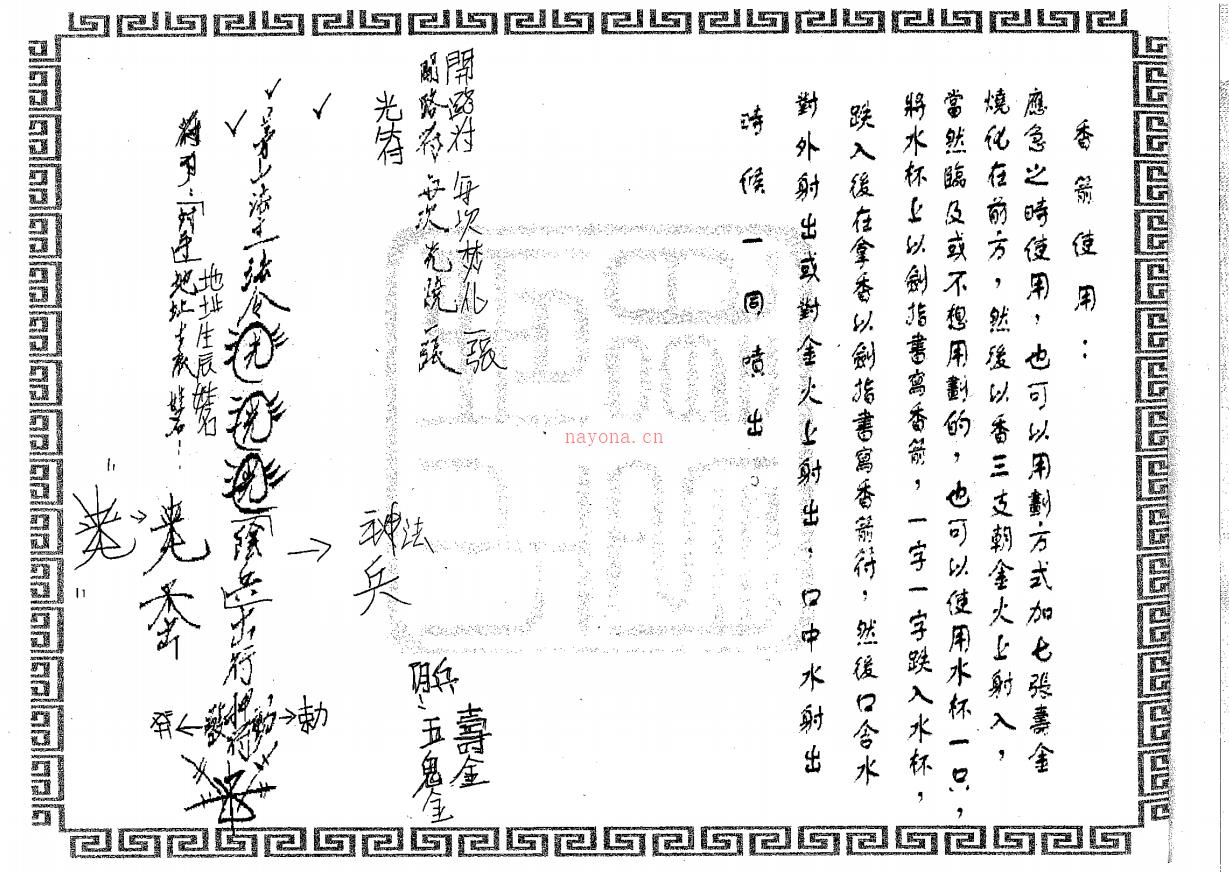 香箭使用：
應急之時使用，也可以用劃方式加七張壽金
燒化在前方，然後以香三支朝金火上射入，
當然臨及或不想用劃的，也可以使用水杯一只，
將水杯上以劍指書寫香箭，一字一字跌入水杯，
跌入後在拿香以劍指書寫香箭符，然後口含水
對外射出或對金火上射出，口中水射出
時候一同噴出。
開路符 每次焚化一張
開路符 每次先燒一張
光符
壽金
陰兵：五鬼金
神法
兵
茅山法主 法令
陰兵出行
勅
発
地址生辰姓名
地址生辰 姓名
nayona.cn